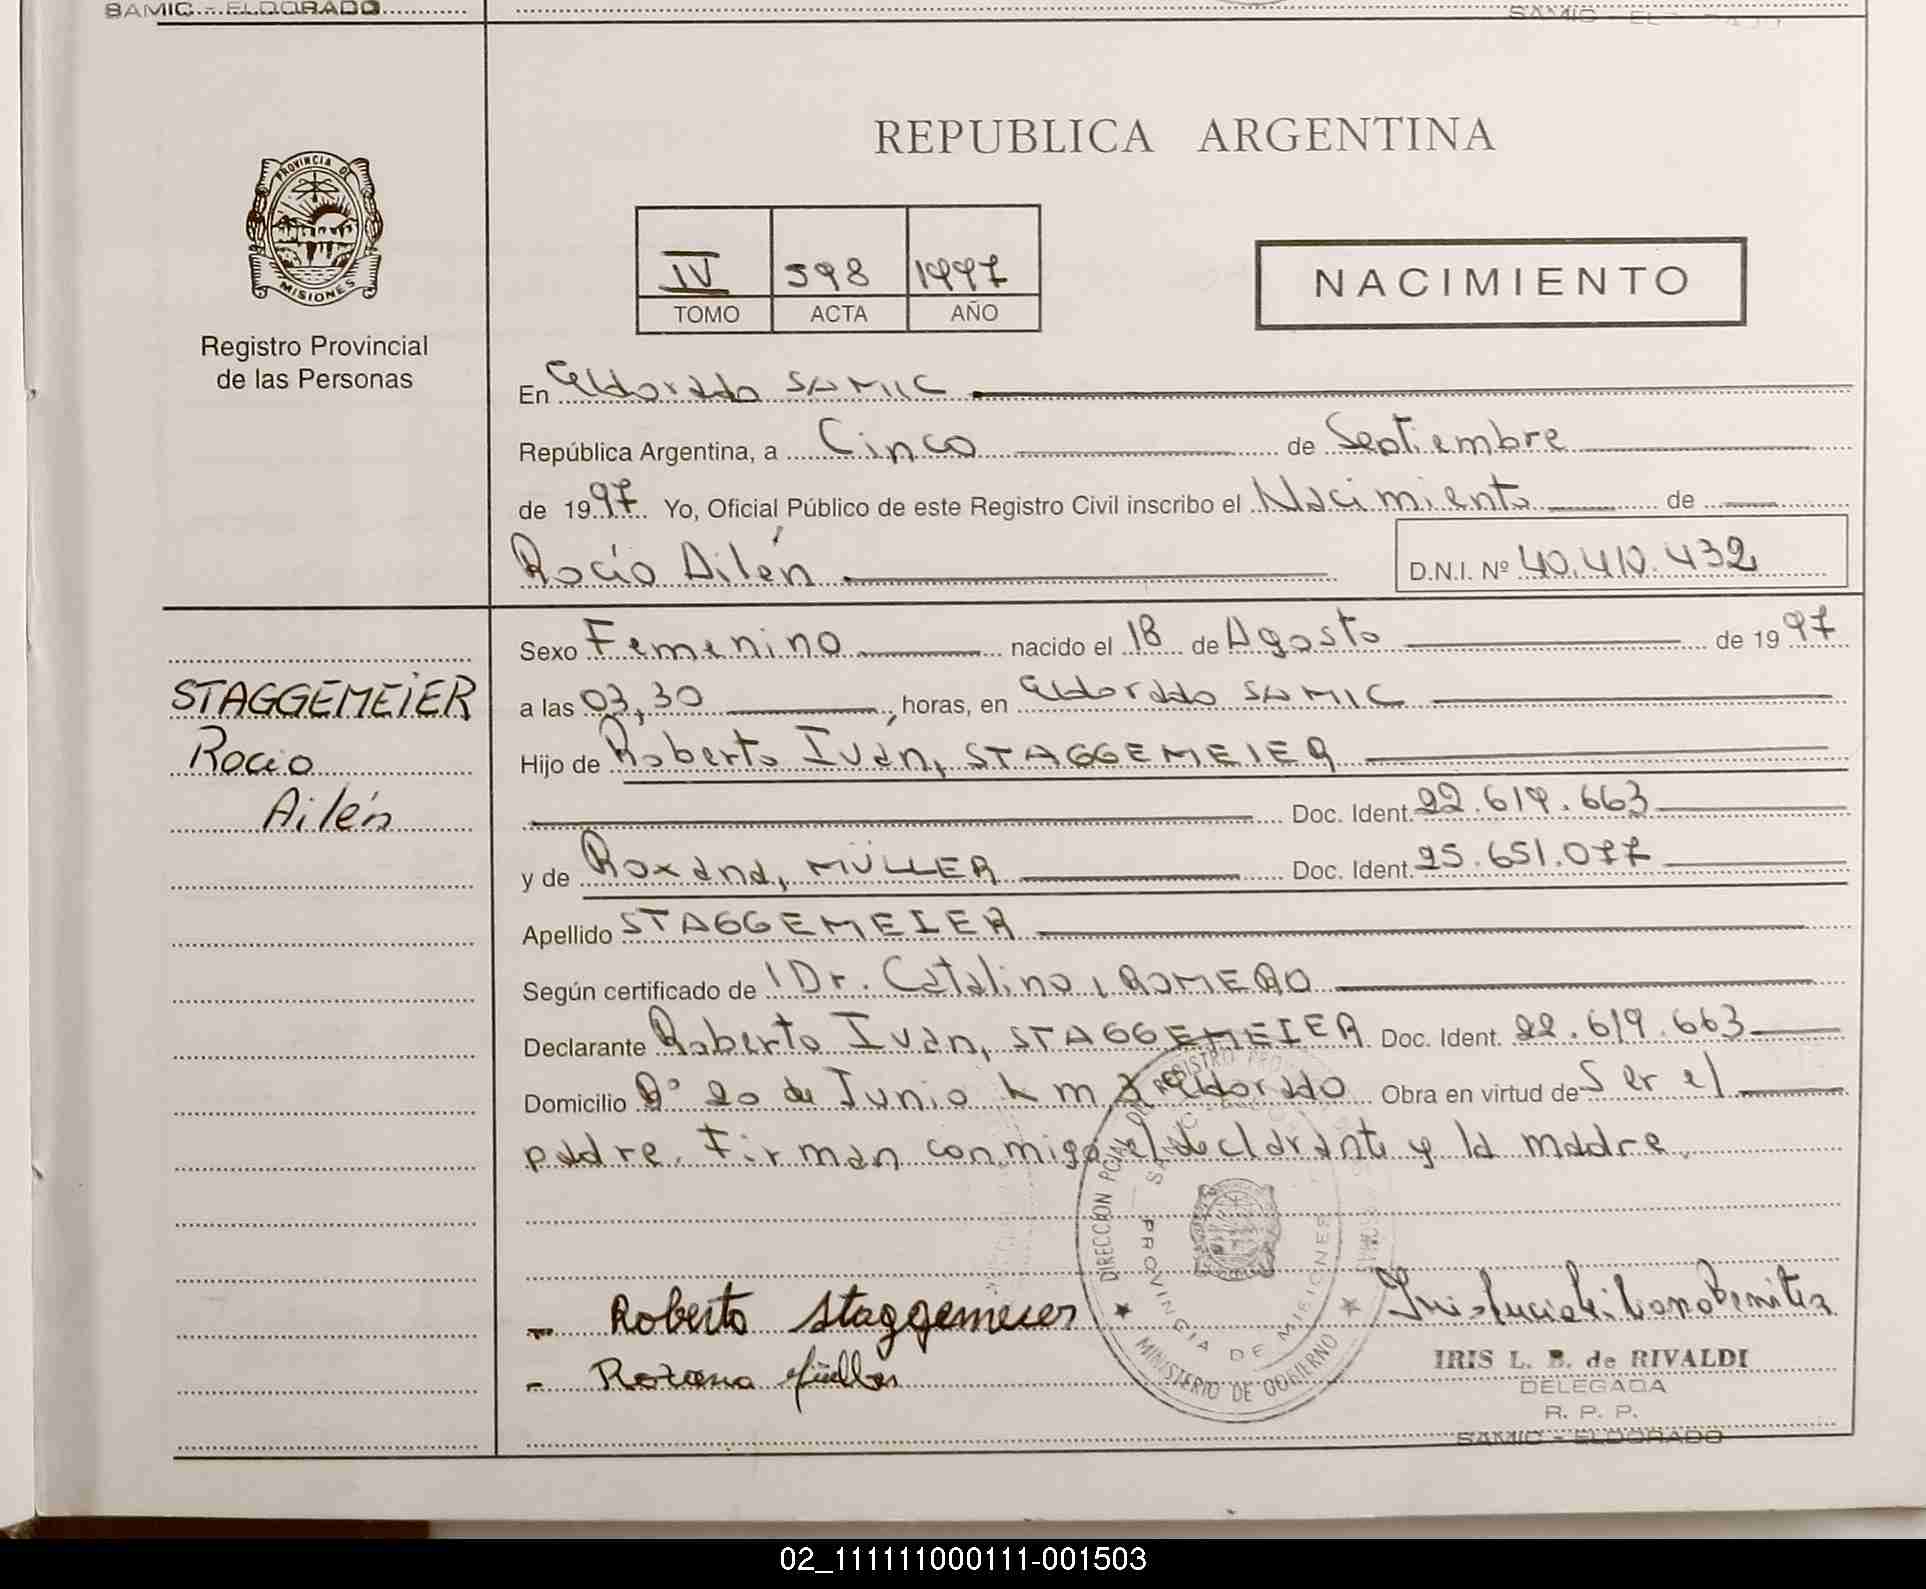 SAMIC - ELDORADO
REPUBLICA ARGENTINA
PROVINCIA DE
MISIONES
Registro Provincial
de las Personas
IV 598 1997
TOMO ACTA AÑO
NACIMIENTO
En Eldorado SAMIC
República Argentina, a Cinco de Septiembre
de 1997 Yo, Oficial Público de este Registro Civil inscribo el Nacimiento de
Rocío Ailén D.N.I. Nº 40.410.432
Sexo Femenino nacido el 18 de Agosto de 1997
STAGGEMEIER
Rocio
Ailén
a las 03,30, horas, en Eldorado SAMIC
Hijo de Roberto Iván, STAGGEMEIER
Doc. Ident. 22.619.663
y de Roxana, MÜLLER Doc. Ident. 25.651.077
Apellido STAGGEMEIER
Según certificado de Dr. Catalino, ROMERO
Declarante Roberto Iván, STAGGEMEIER Doc. Ident. 22.619.663
Domicilio Bº 20 de Junio km 2 Eldorado Obra en virtud de Ser el
padre. Firman conmigo el declarante y la madre.
DIRECCION
PROVINCIA DE MISIONES
MINISTERIO DE GOBIERNO
- Roberto Staggemeier
- Roxana Müller
IRIS L. B. de RIVALDI
DELEGADA
R. P. P.
SAMIC - ELDORADO
02_111111000111-001503